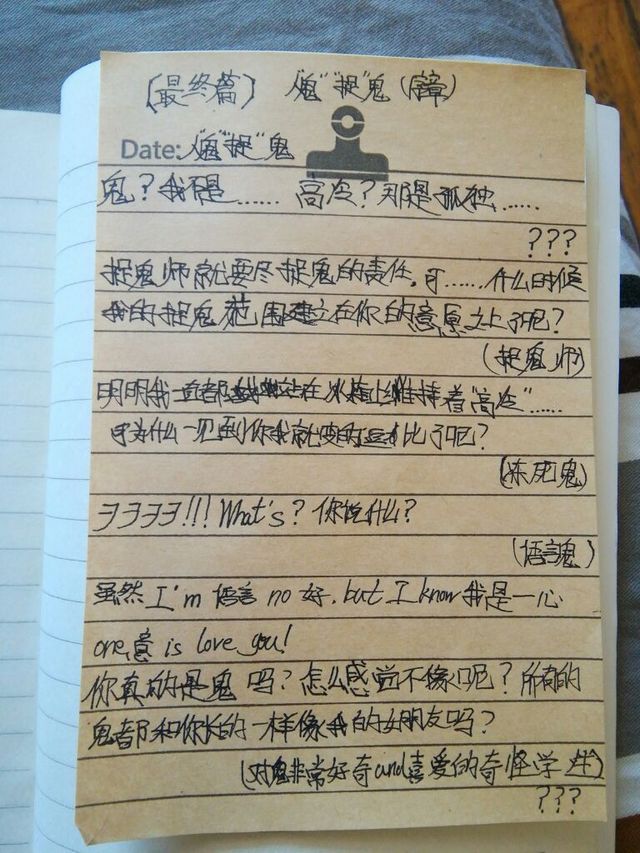 【最终篇】 "捉"鬼(序章)
Date: "捉"鬼
鬼？我不是…… 高冷？那是孤独……
？？？
捉鬼师就要尽捉鬼的责任。可……什么时候
我的捉鬼范围建立在你的意愿之上了呢？
(捉鬼师)
明明我一直都站在冰箱上维持着"高冷"……
可为什么一见到你我就变的逗比了呢？
(冻死鬼)
ヨヨヨヨ!!! What's? 你说什么？
(语言鬼)
虽然 I'm 语言 no 好, but I know 我是一心
one 意 is love you!
你真的是鬼吗？怎么感觉不像呢？所有的
鬼都和你长的一样像我的好朋友吗？
(对鬼非常好奇and喜爱的奇怪学生)
？？？